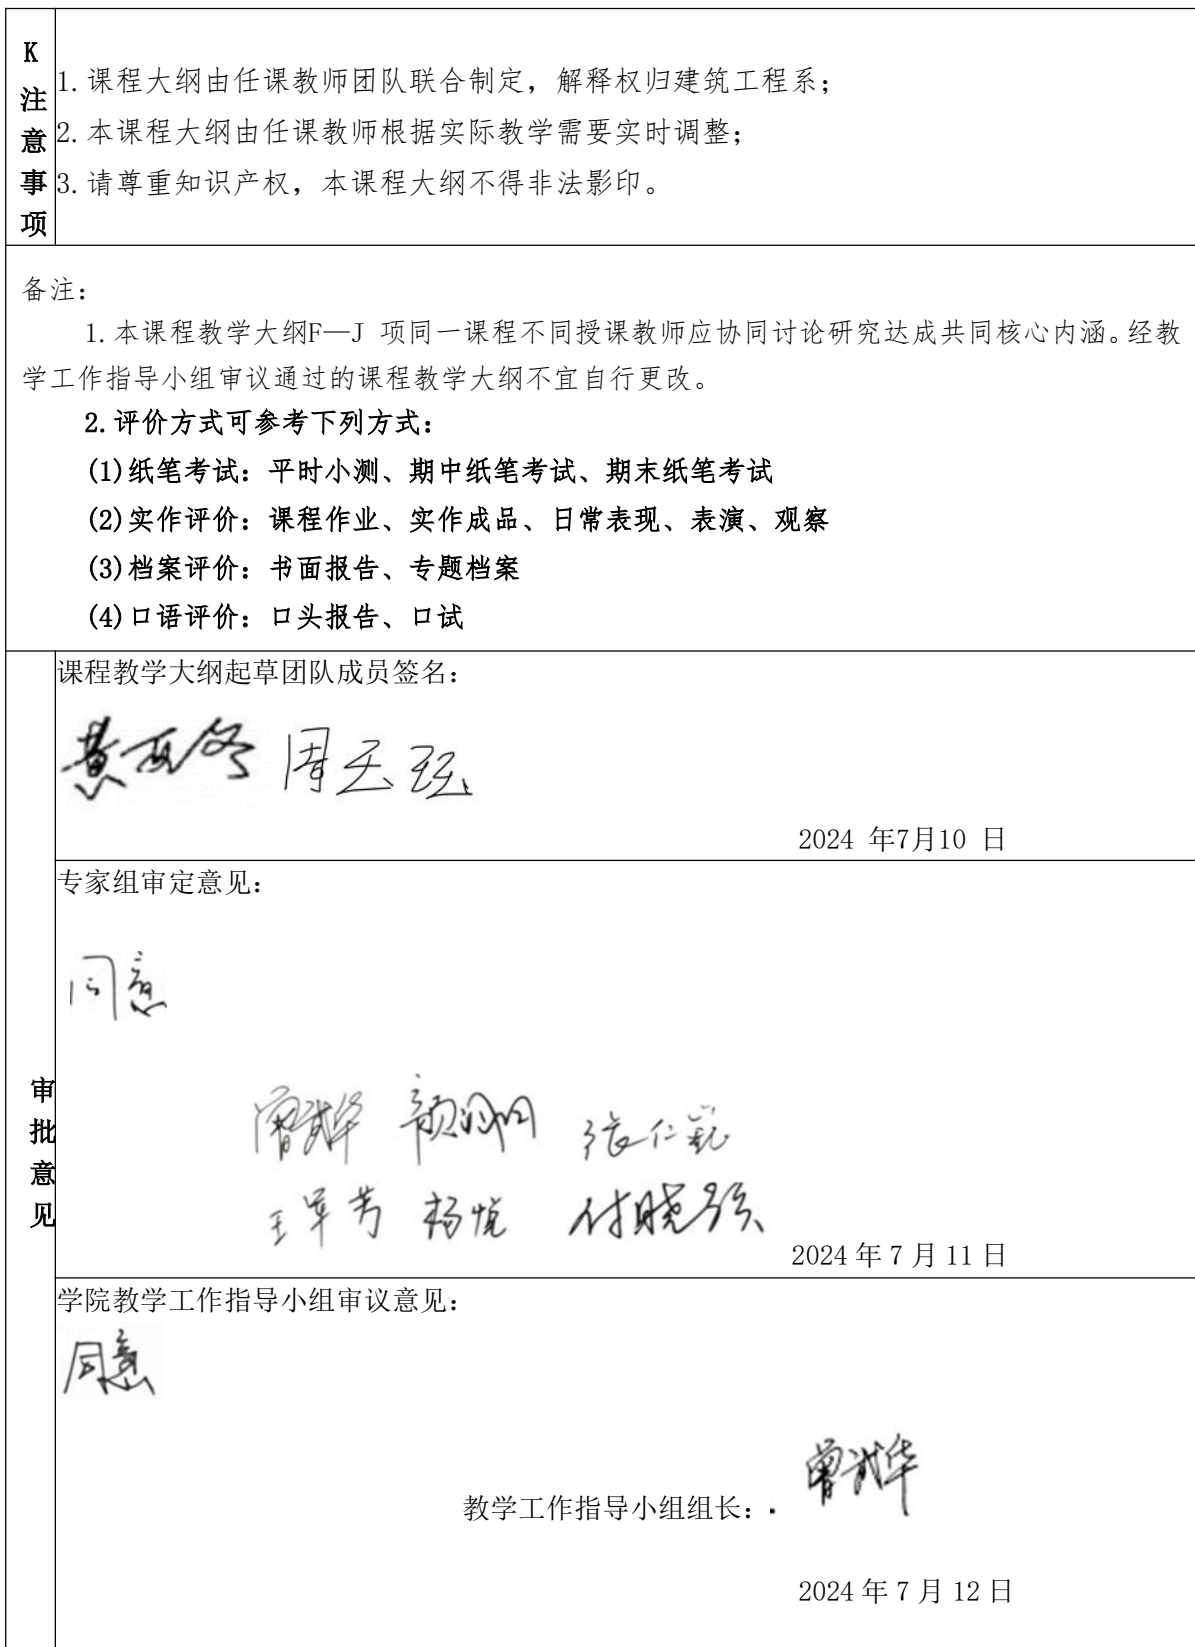 K
注
意
事
项
1.课程大纲由任课教师团队联合制定，解释权归建筑工程系；
2.本课程大纲由任课教师根据实际教学需要实时调整；
3.请尊重知识产权，本课程大纲不得非法影印。
备注：
1.本课程教学大纲F—J 项同一课程不同授课教师应协同讨论研究达成共同核心内涵。经教
学工作指导小组审议通过的课程教学大纲不宜自行更改。
2.评价方式可参考下列方式：
(1)纸笔考试：平时小测、期中纸笔考试、期末纸笔考试
(2)实作评价：课程作业、实作成品、日常表现、表演、观察
(3)档案评价：书面报告、专题档案
(4)口语评价：口头报告、口试
审
批
意
见
课程教学大纲起草团队成员签名：
2024 年7月10 日
专家组审定意见：
同意
曾武华 张仁巍
王军芳 杨悦
2024 年 7 月 11 日
学院教学工作指导小组审议意见：
同意
教学工作指导小组组长：曾武华
2024 年 7 月 12 日